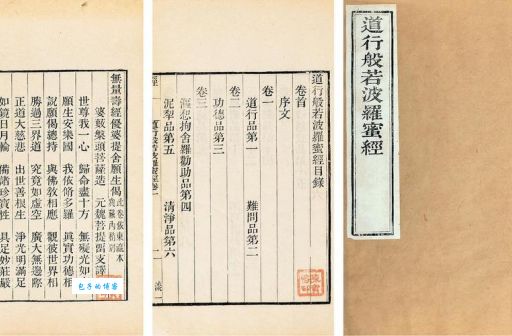 道行般若波羅蜜經
道行般若波羅蜜經目錄
卷首
序文
卷一
道行品第一 難問品第二
卷二
功德品第三
漚惒拘舍羅勸助品第四
卷三
泥犁品第五 清淨品第六
無量壽經優婆提舍願生偈
婆藪槃頭菩薩造 元魏菩提留支譯
世尊我一心 歸命盡十方 無礙光如
願生安樂國 我依修多羅 真實功德相
說願偈總持 與佛教相應 觀彼世界相
勝過三界道 究竟如虛空 廣大無邊際
正道大慈悲 出世善根生 淨光明滿足
如鏡日月輪 備諸珍寶性 具足妙莊嚴
包子的博客